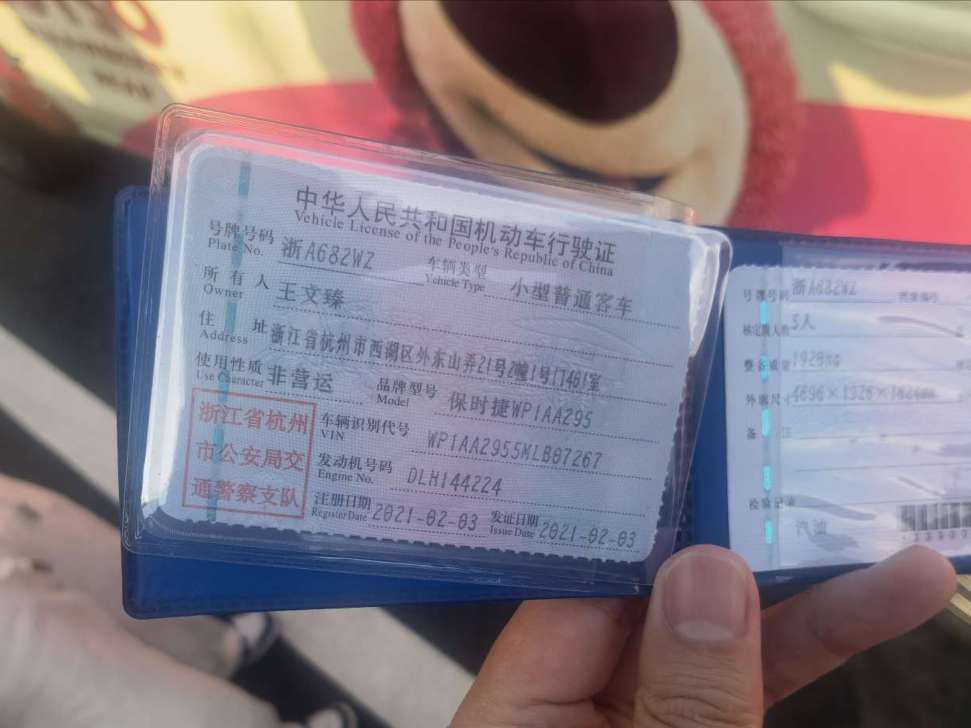 中华人民共和国机动车行驶证
Vehicle License of the People's Republic of China
号牌号码 浙A682WZ 车辆类型 小型普通客车
Plate No. Vehicle Type
所有人 王文臻
Owner
住址 浙江省杭州市西湖区外东山弄21号2幢1号17461室
Address
使用性质 非营运 品牌型号 保时捷WP1AA295
Use Character Model
浙江省杭州
市公安局交
通警察支队
车辆识别代号 WP1AA2955MLB07267
VIN
发动机号码 DLH144224
Engine No.
注册日期 2021-02-03 发证日期 2021-02-03
Register Date Issue Date
号牌号码 浙A682WZ 档案编号
核定载人数 5人
整备质量
外廓尺寸
备注
检验记录
汽油